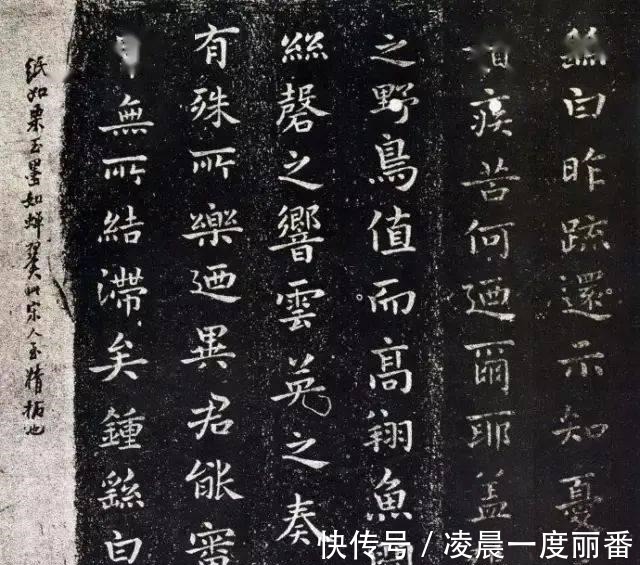 繇白昨疏還示知憂
疾苦何迺爾耶蓋
之野鳥值而高翔魚
絲磬之響雲英之奏
有殊所樂迺異君能審
無所結滯矣鍾繇白
紙如栗玉墨如蟬翼此宋人至精拓也
快传号 / 凌晨一度丽番